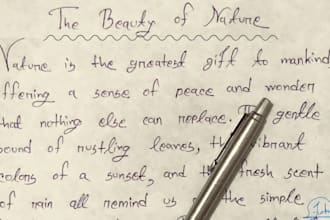 The Beauty of Nature
Nature is the greatest gift to mankind
ffering a sense of peace and wonder
that nothing else can replace. gentle
ound of rustling leaves, the vibrant
colors of a sunset, and the fresh scent
of rain all remind us the simple